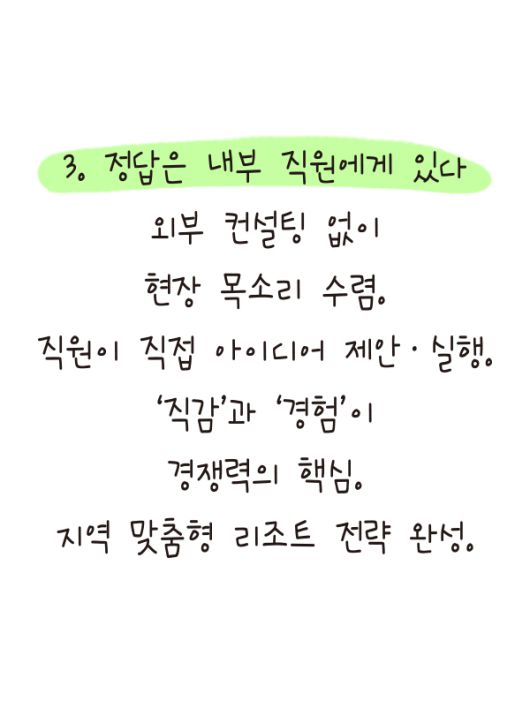 3. 정답은 내부 직원에게 있다
외부 컨설팅 없이
현장 목소리 수렴.
직원이 직접 아이디어 제안·실행.
‘직감’과 ‘경험’이
경쟁력의 핵심.
지역 맞춤형 리조트 전략 완성.